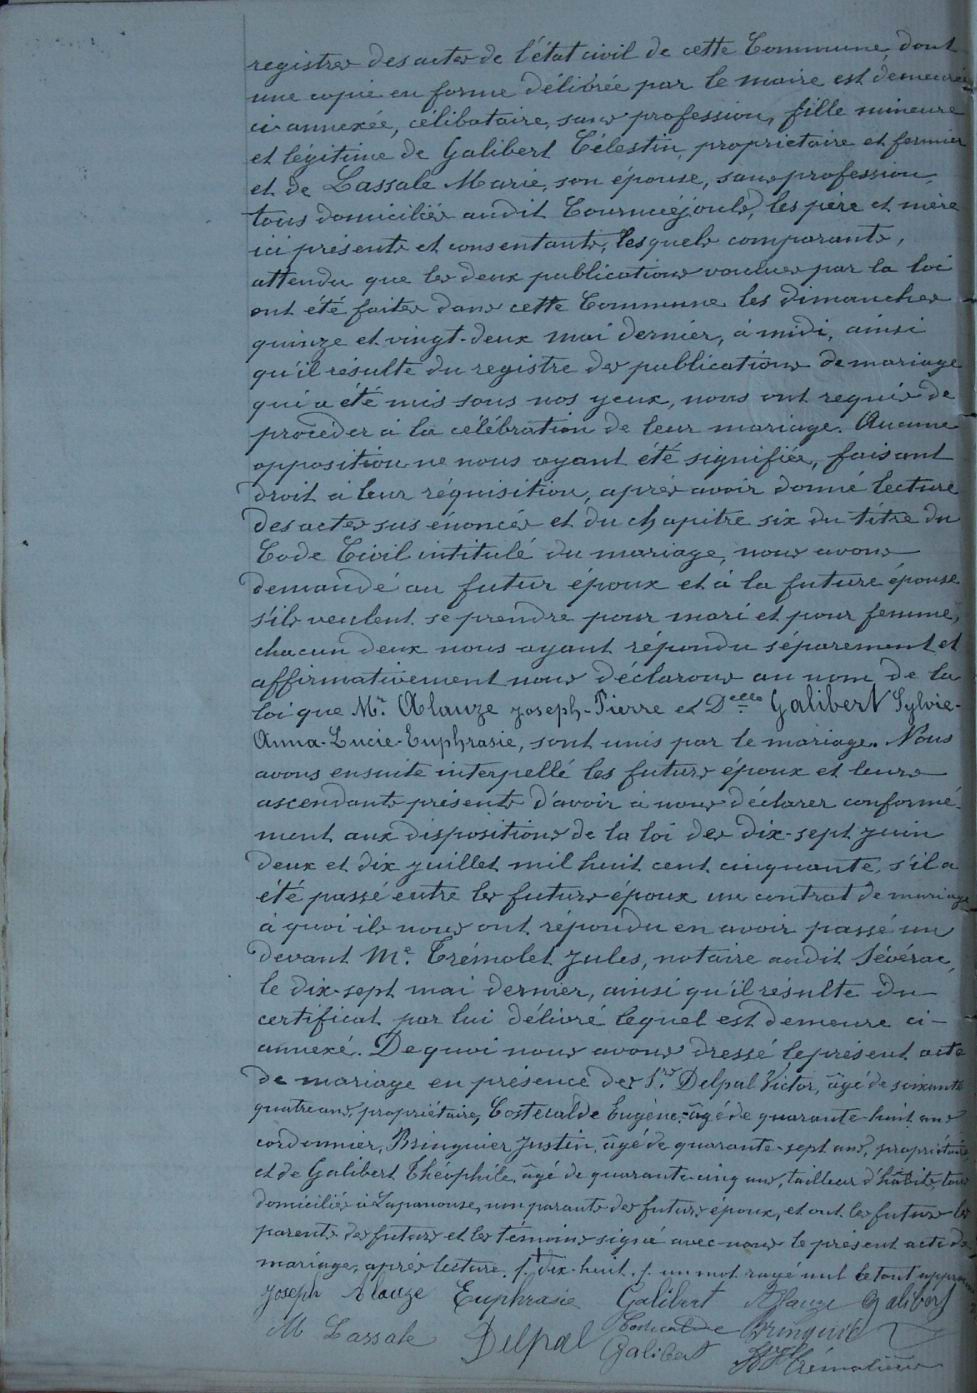 registres des actes de l'état civil de cette Commune, dont
une copie en forme délivrée par le maire est demeurée
ci-annexée, célibataire, sans profession, fille mineure
et légitime de Galibert Célestin, propriétaire et fermier
et de Lassale Marie, son épouse, sans profession,
tous domiciliés audit les père et mère
ici présents et consentants, lesquels comparants,
attendu que les deux publications voulues par la loi
ont été faites dans cette Commune les dimanches
quinze et vingt-deux mai dernier, à midi, ainsi
qu'il résulte du registre des publications de mariage
qui a été mis sous nos yeux, nous ont requis de
procéder à la célébration de leur mariage. Aucune
opposition ne nous ayant été signifiée, faisant
droit à leur réquisition, après avoir donné lecture
des actes sus énoncés et du chapitre six du titre du
Code Civil intitulé du mariage, nous avons
demandé au futur époux et à la future épouse
s'ils veulent se prendre pour mari et pour femme,
chacun deux nous ayant répondu séparement et
affirmativement nous déclarons au nom de la
loi que Mr. Alauze Joseph-Pierre et Delle Galibert Sylvie-
Anna-Lucie-Euphrasie, sont unis par le mariage. Nous
avons ensuite interpellé les futurs époux et leurs
ascendants présents d'avoir à nous déclarer conformé-
ment aux dispositions de la loi des dix-sept juin
deux et dix juillet mil huit cent cinquante, s'il a
été passé entre les futurs époux un contrat de mariage
à quoi ils nous ont répondu en avoir passé un
devant Me. Trémolet Jules, notaire audit Sévérac,
le dix-sept mai dernier, ainsi qu'il résulte du
certificat par lui délivré lequel est demeure ci-
annexé. De quoi nous avons dressé le présent acte
de mariage en présence des Srs Delpal Victor, âgé de soixante
quatre ans, propriétaire, Costecalde Eugène, âgé de quarante-huit ans
cordonnier, Bringuier Justin, âgé de quarante-sept ans, propriétaire
et de Galibert Théophile, âgé de quarante-cinq ans, tailleur d'habits, tous
domiciliés à Lapanouse, non parants des futurs époux, et ont les futurs les
parents des futurs et les témoins signé avec nous le présent acte de
mariage, après lecture. f. dix-huit. f. un mot rayé nul le tout approuvé
Joseph Alauze Euphrasie Galibert Alauze Galibert
M Lassale Delpal Costecalde Bringuier
Galibert